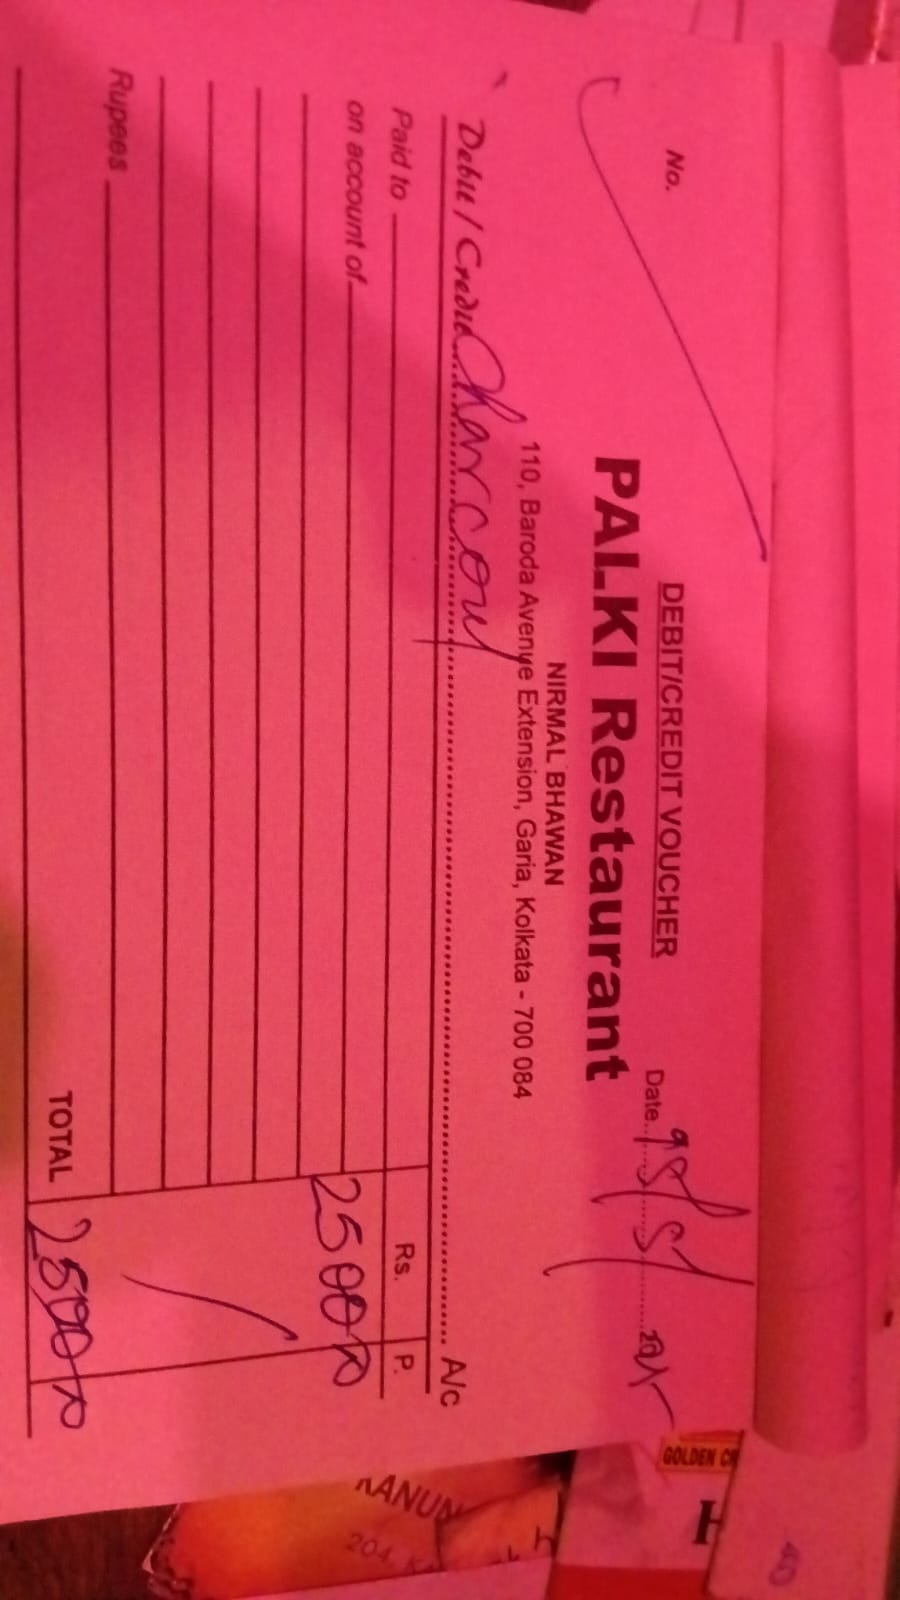 No.
DEBIT/CREDIT VOUCHER
Date
PALKI Restaurant
NIRMAL BHAWAN
110, Baroda Avenye Extension, Garia, Kolkata - 700 084
Debit / Credit Charcoul A/c
Paid to
Rs. P.
on account of
2500
Rupees
TOTAL 2500
GOLDEN CR
H
KANUN
204, K